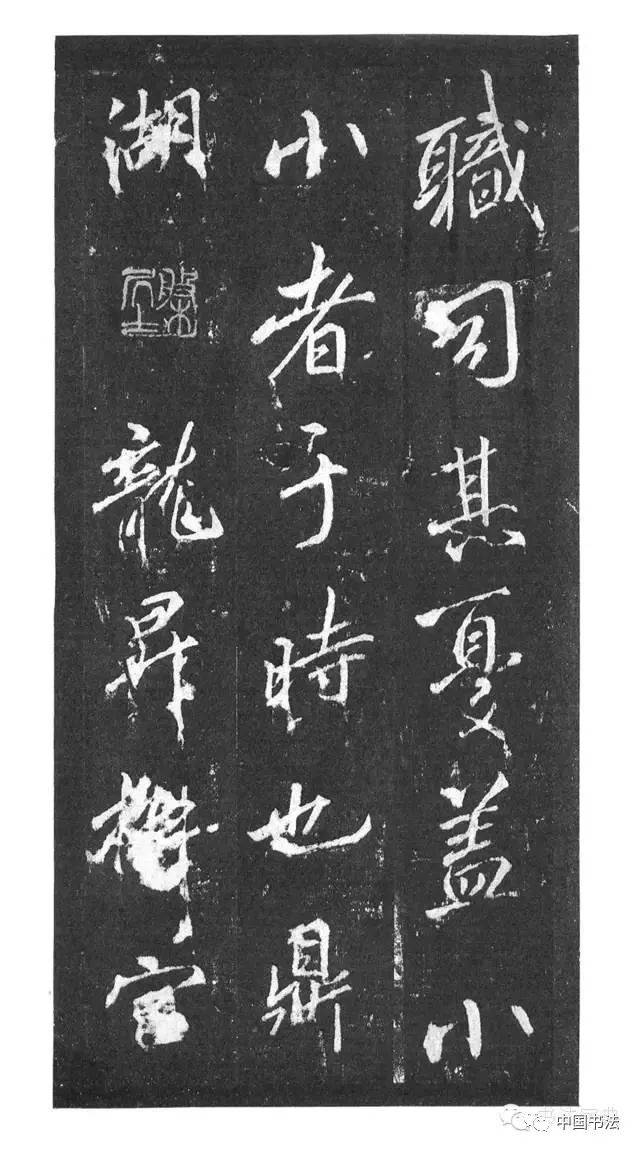 職司其憂盖小
小者于時也鼎
湖龍昇
中国书法